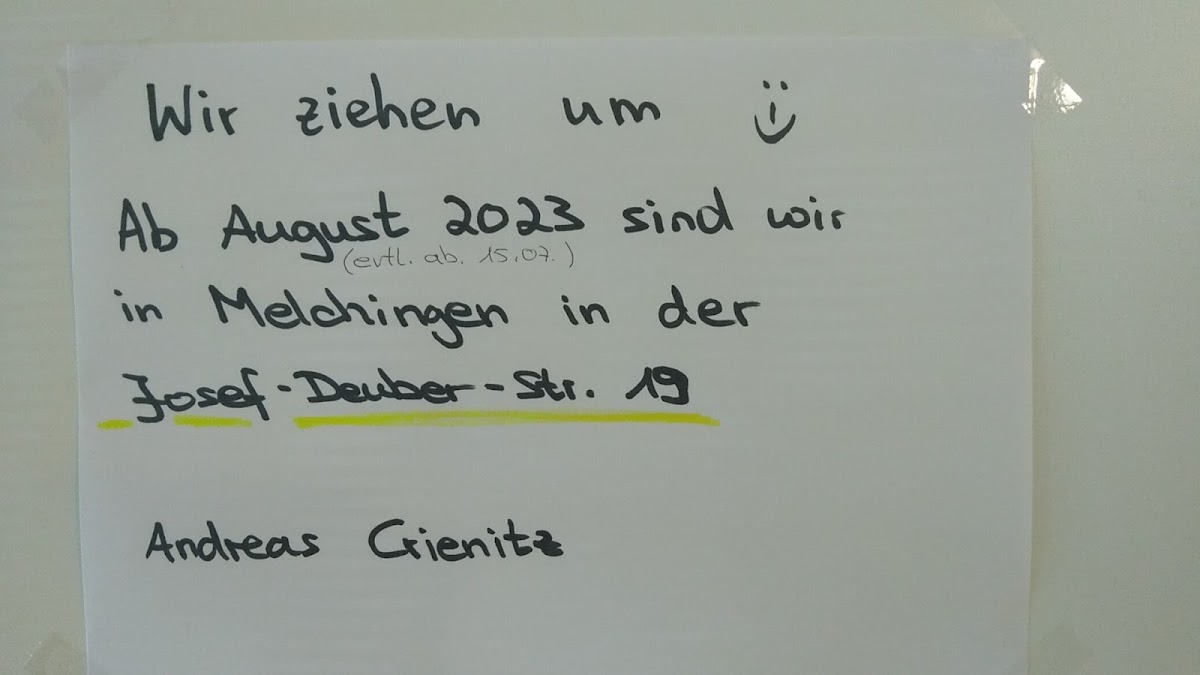 Wir ziehen um
Ab August 2023 sind wir
(evtl. ab. 15.07.)
in Melchingen in der
Josef-Deuber-Str. 19
Andreas Crienitz